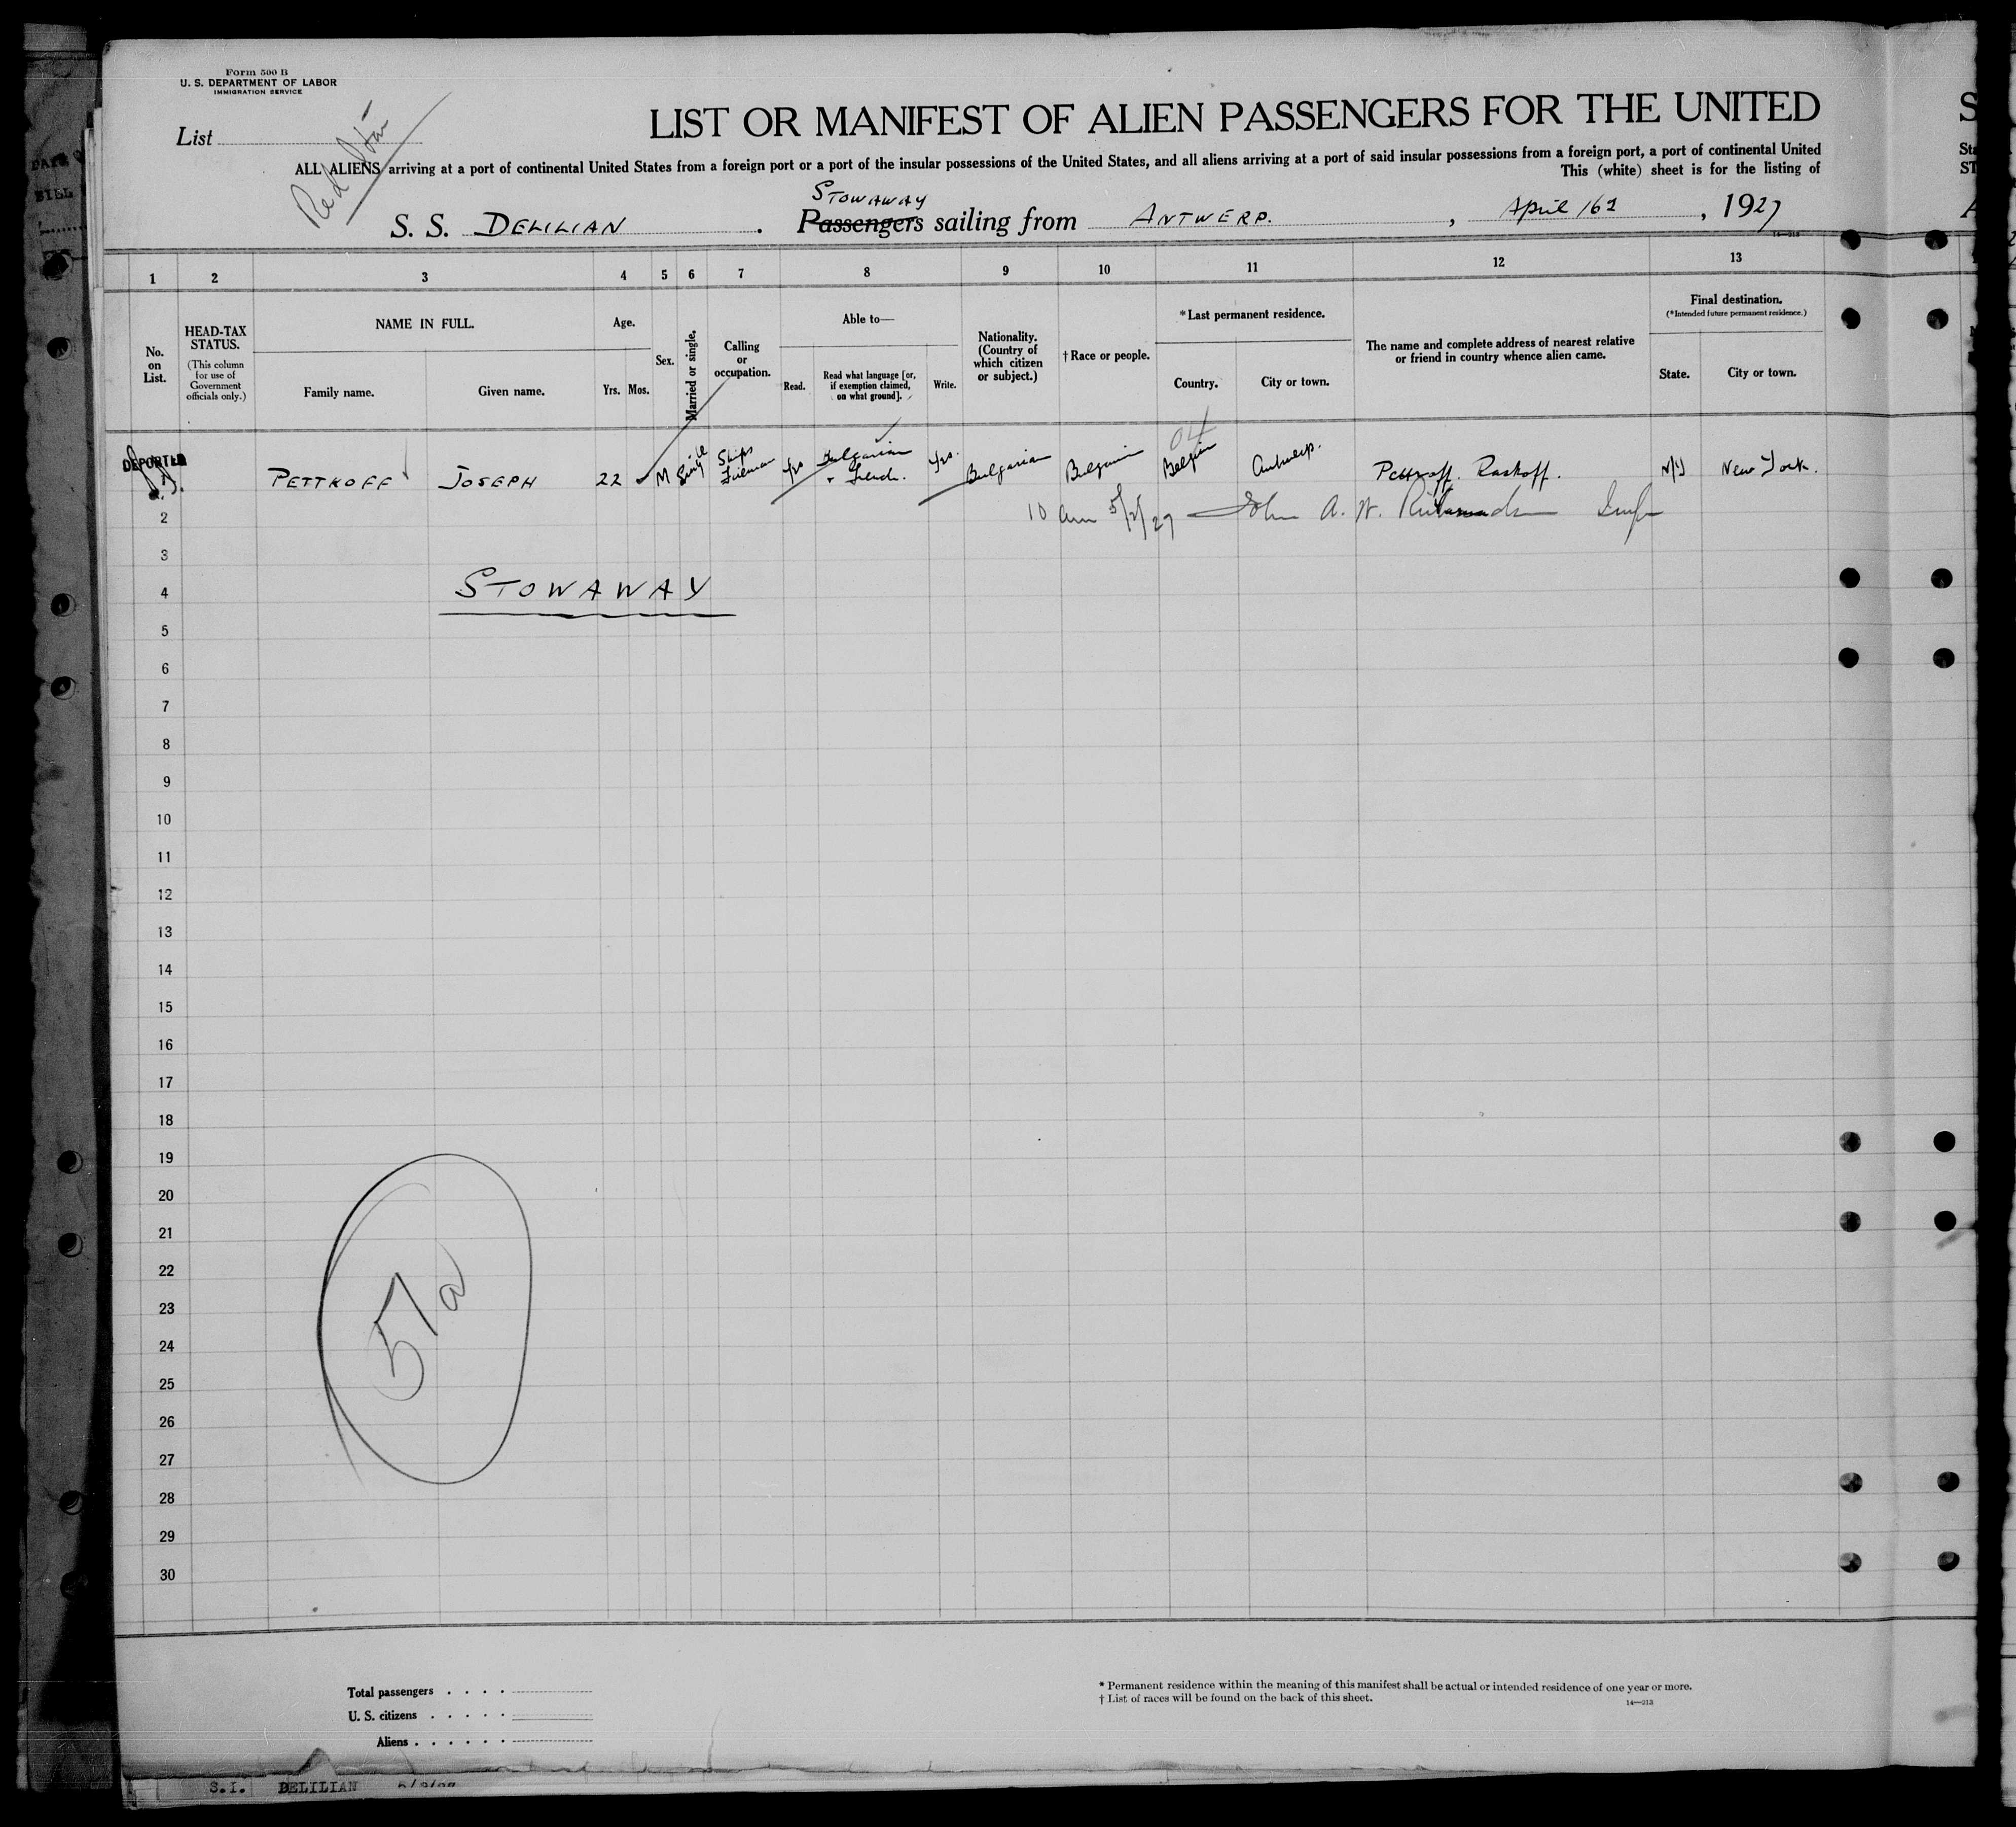 Form 500 B
U. S. DEPARTMENT OF LABOR
IMMIGRATION SERVICE
List
Red Star
LIST OR MANIFEST OF ALIEN PASSENGERS FOR THE UNITED
ALL ALIENS arriving at a port of continental United States from a foreign port or a port of the insular possessions of the United States, and all aliens arriving at a port of said insular possessions from a foreign port, a port of continental United
This (white) sheet is for the listing of
STOWAWAY
S. S. DELILIAN . Passengers sailing from ANTWERP. , April 16 , 1927
1 2 3 4 5 6 7 8 9 10 11 12 13
No. on List.
HEAD-TAX STATUS.
(This column for use of Government officials only.)
NAME IN FULL.
Family name. Given name.
Age.
Yrs. Mos.
Sex.
Married or single.
Calling or occupation.
Able to—
Read. Read what language [or, if exemption claimed, on what ground]. Write.
Nationality. (Country of which citizen or subject.)
† Race or people.
*Last permanent residence.
Country. City or town.
The name and complete address of nearest relative or friend in country whence alien came.
Final destination.
(*Intended future permanent residence.)
State. City or town.
04
DEPORTED PETTKOFF JOSEPH 22 M Single Ships Fireman Yes Bulgarian + French. Yes. Bulgarian Bulgarian Belgium Antwerp. Pettkoff. Raskoff. N/Y New York.
2 10 am 5/2/27 John A. W. Richmond
3
4 STOWAWAY
5
6
7
8
9
10
11
12
13
14
15
16
17
18
19
20
21
22
23
24
25
26
27
28
29
30
57a
Total passengers
U. S. citizens
Aliens
* Permanent residence within the meaning of this manifest shall be actual or intended residence of one year or more.
† List of races will be found on the back of this sheet.
14—213
S.I. DELILIAN 5/2/27